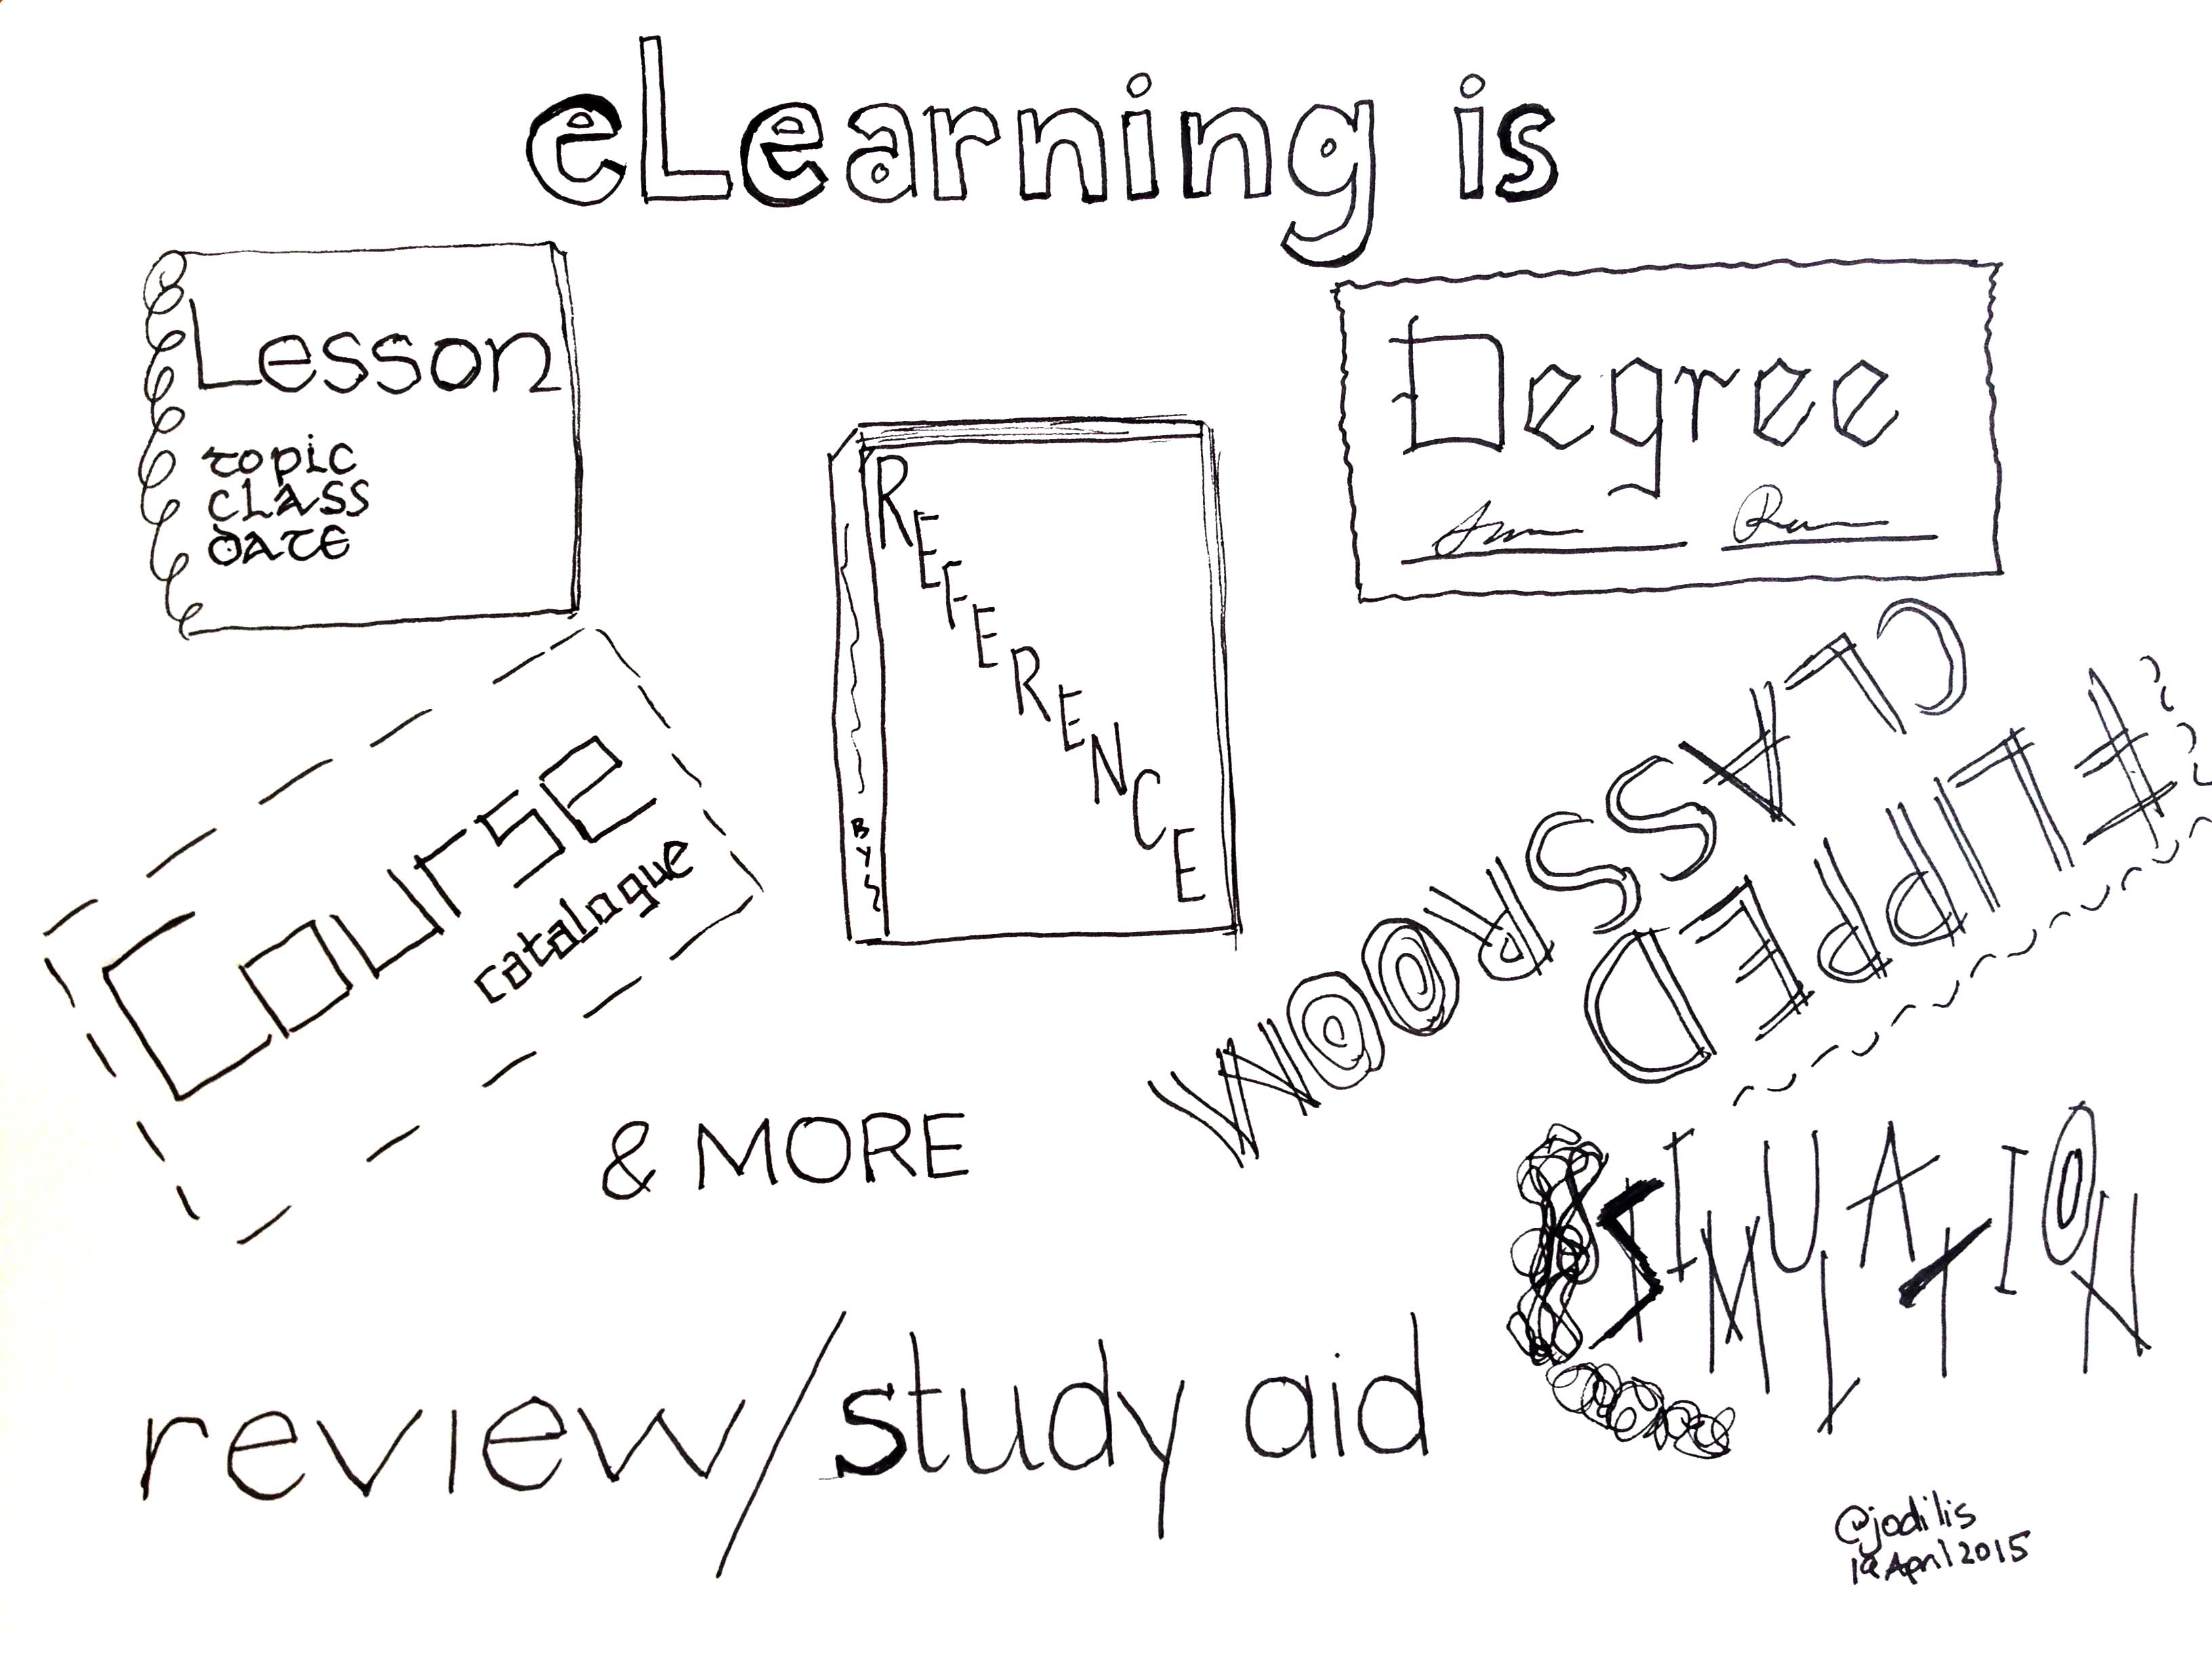 eLearning is
Lesson
topic
CLASS
DATE
Degree
REFERENCE
BY
COURSE
catalogue
FLIPPED
CLASSROOM
& MORE
SIMULATION
review/study aid
@jodilis
April 2015